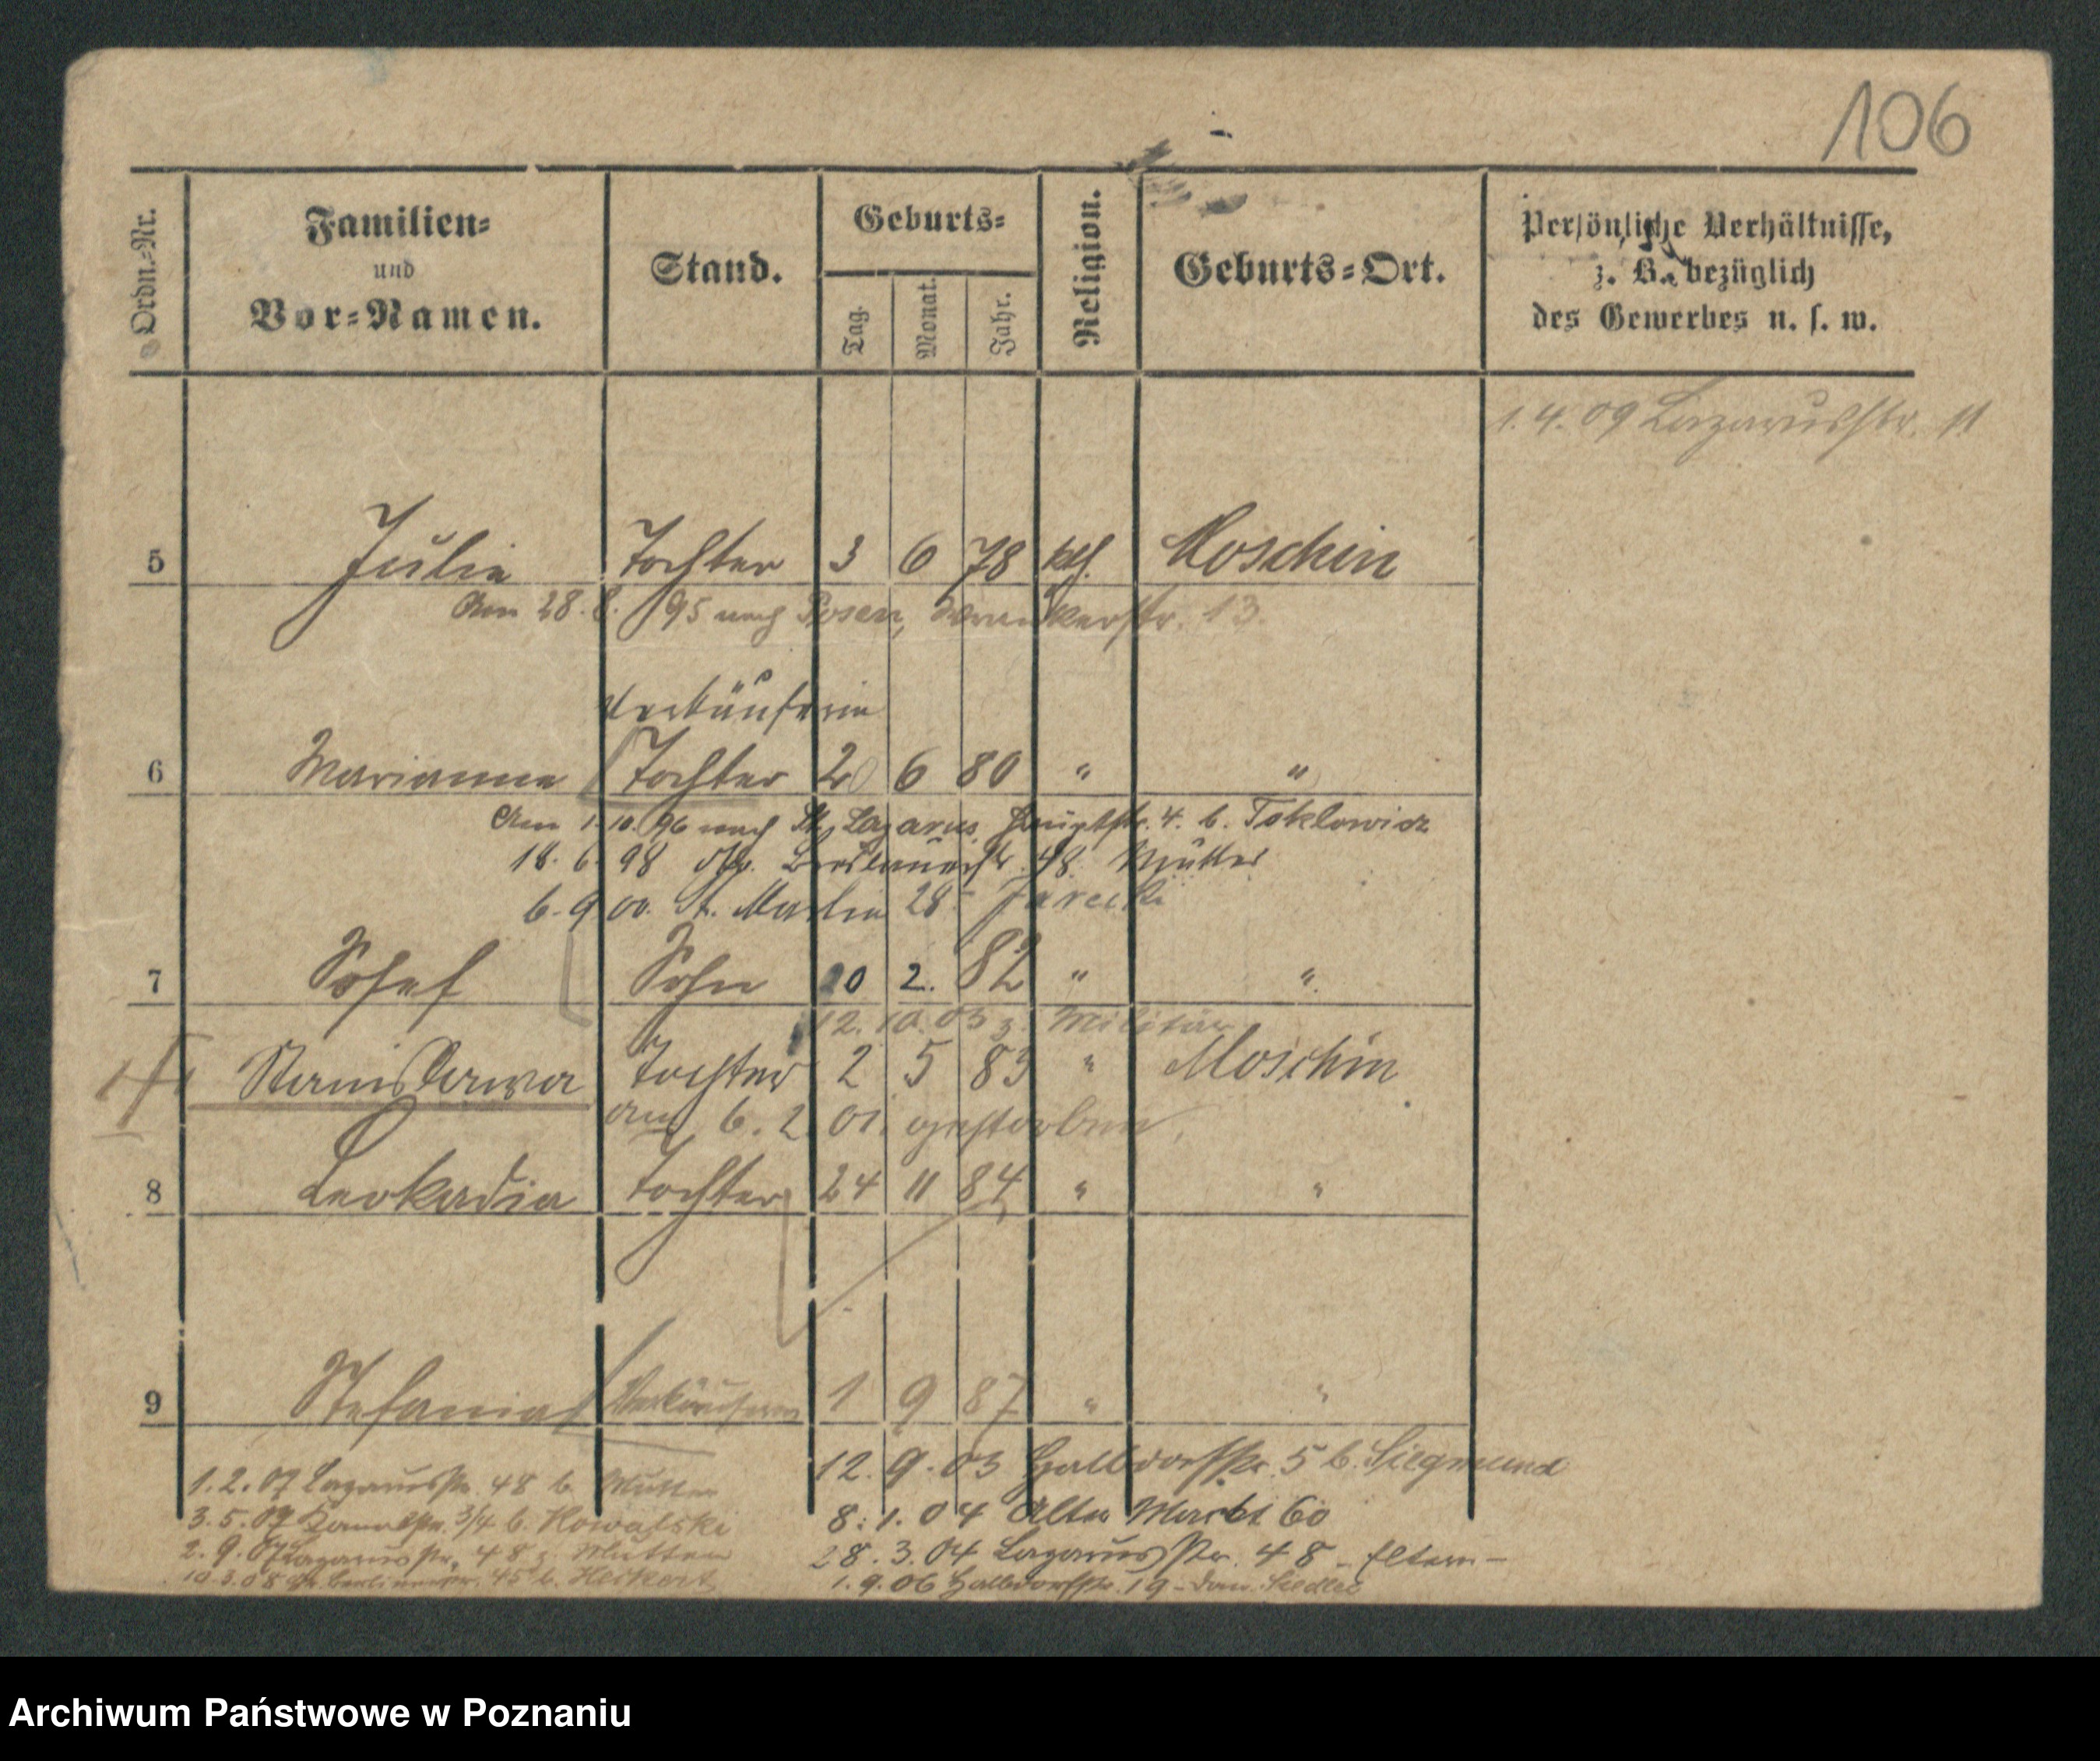 106
Ordn.-Nr.
Familien-
und
Vor-Namen.
Stand.
Geburts-
Tag.
Monat.
Jahr.
Religion.
Geburts-Ort.
Persönliche Verhältnisse,
z. B. bezüglich
des Gewerbes u. s. w.
1.4.09 Lazarusstr. 11
5 Julie Tochter 3 6 78 kth. Moschin
Am 28.8.95 nach Posen, 13.
Verkäuferin
6 Marianna Tochter 20 6 80 " "
Am 1.10.96 nach St. Lazarus, Hauptstr. 4. b. Toklowicz
18.6.98 48. Mutter
6.9.00. St. Martin 28 Jarecki
7 Josef Sohn 20 2. 82 " "
12.10.03 z. Militär
Stanislawa Tochter 2 5 83 " Moschin
am 6.2.01. gestorben,
8 Leokadia Tochter 24 11 84 " "
9 Stefania Verkäuferin 1 9 87 " "
12.9.03 Halbdorfstr. 5 b. Siegmund
1.2.07 Lazarusstr. 48 b. Mutter
8.1.04 Alter Markt 60
3.5.07 3/4 b. Kowalski
28.3.04 Lazarusstr. 48 - Eltern -
2.9.07 Lazarusstr. 48 z. Mutter
1.9.06 Halbdorfstr. 19 -
10.3.08 Gr. Berlinerstr. 45 b. Heikert
Archiwum Państwowe w Poznaniu